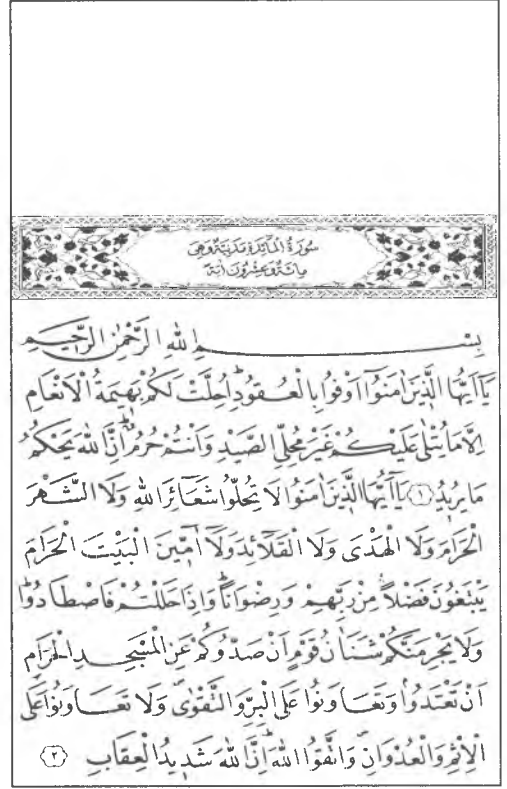 سُورَةُ الْمَائِدَةِ مَدَنِيَّةٌ وَهِيَ
مِائَةٌ وَعِشْرُونَ اٰيَةً
بِسْمِ اللّٰهِ الرَّحْمٰنِ الرَّحِيمِ
يَٓا اَيُّهَا الَّذِينَ اٰمَنُٓوا اَوْفُوا بِالْعُقُودِۜ اُحِلَّتْ لَكُمْ بَهِيمَةُ الْاَنْعَامِ
اِلَّا مَا يُتْلٰى عَلَيْكُمْ غَيْرَ مُحِلِّي الصَّيْدِ وَاَنْتُمْ حُرُمٌۜ اِنَّ اللّٰهَ يَحْكُمُ
مَا يُرِيدُ ﴿١﴾ يَٓا اَيُّهَا الَّذِينَ اٰمَنُوا لَا تُحِلُّوا شَعَٓائِرَ اللّٰهِ وَلَا الشَّهْرَ
الْحَرَامَ وَلَا الْهَدْيَ وَلَا الْقَلَٓائِدَ وَلَٓا اٰمِّينَ الْبَيْتَ الْحَرَامَ
يَبْتَغُونَ فَضْلًا مِنْ رَبِّهِمْ وَرِضْوَانًاۜ وَاِذَا حَلَلْتُمْ فَاصْطَادُواۜ
وَلَا يَجْرِمَنَّكُمْ شَنَاٰنُ قَوْمٍ اَنْ صَدُّوكُمْ عَنِ الْمَسْجِدِ الْحَرَامِ
اَنْ تَعْتَدُواۢ وَتَعَاوَنُوا عَلَى الْبِرِّ وَالتَّقْوٰىۖ وَلَا تَعَاوَنُوا عَلَى
الْاِثْمِ وَالْعُدْوَانِۖ وَاتَّقُوا اللّٰهَۜ اِنَّ اللّٰهَ شَدِيدُ الْعِقَابِ ﴿٢﴾